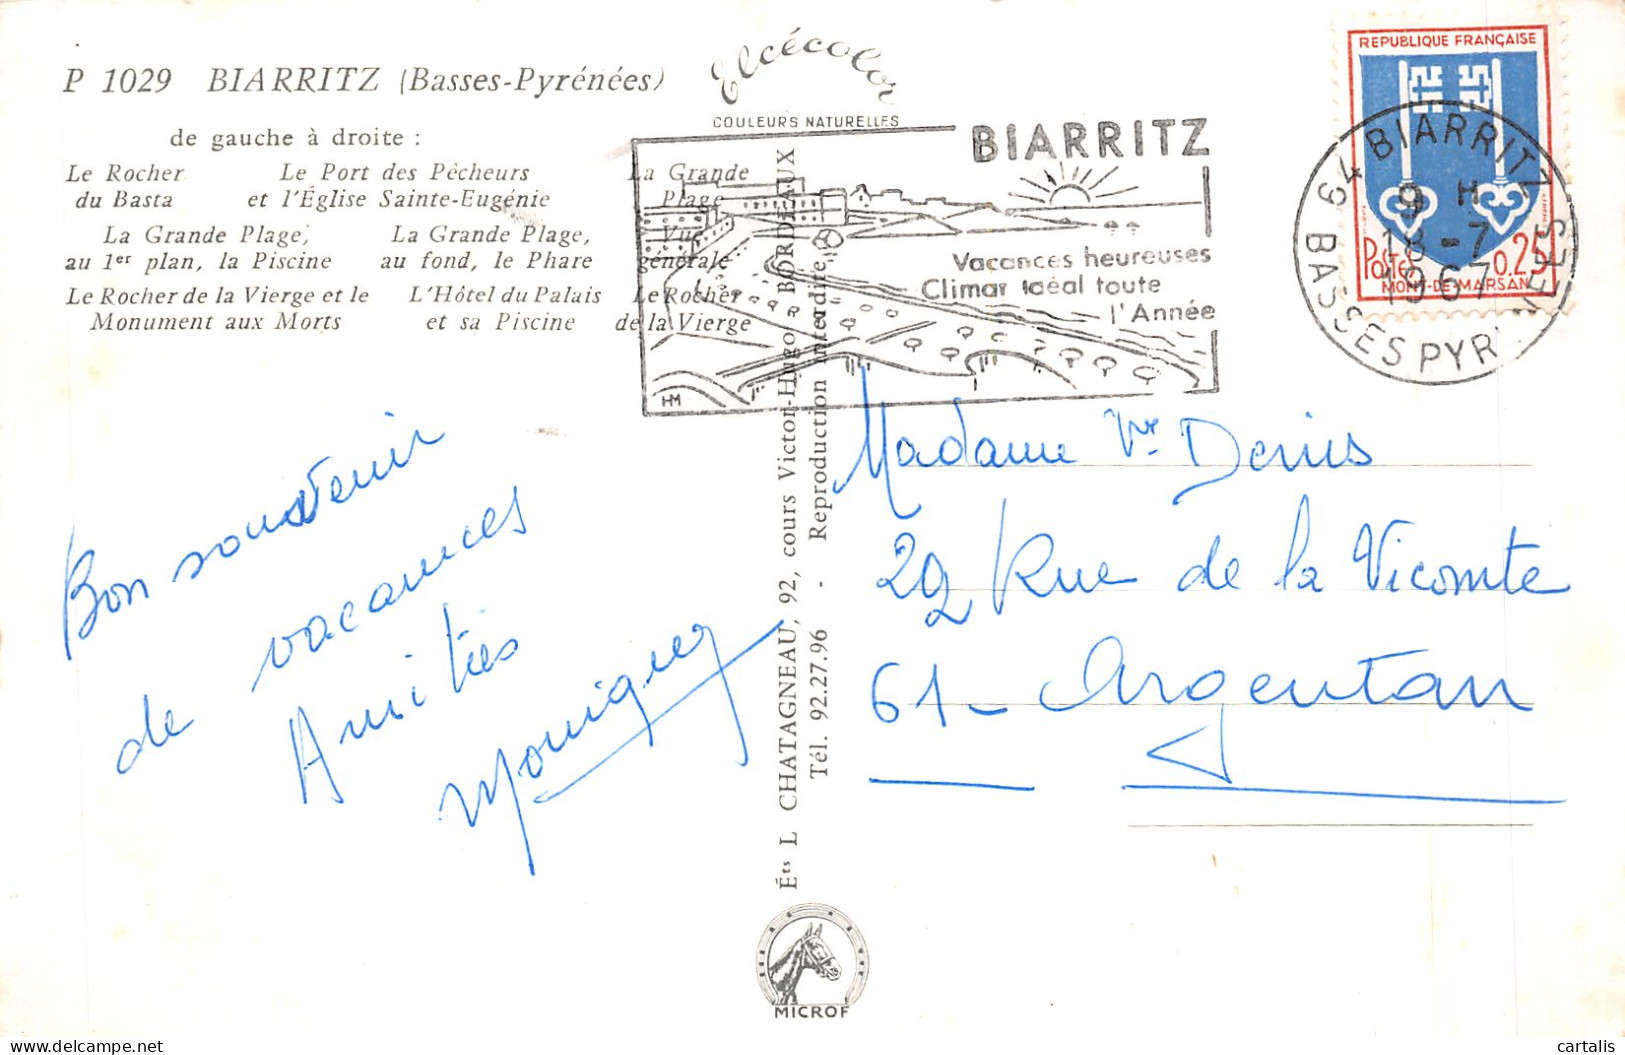 P 1029 BIARRITZ (Basses-Pyrénées)
de gauche à droite :
Le Rocher du Basta
Le Port des Pêcheurs et l'Église Sainte-Eugénie
La Grande Plage
Vue générale
La Grande Plage, au 1er plan, la Piscine
La Grande Plage, au fond, le Phare
Le Rocher de la Vierge et le Monument aux Morts
L'Hôtel du Palais et sa Piscine
Le Rocher de la Vierge
Elcécolor
COULEURS NATURELLES
BIARRITZ
Vacances heureuses
Climat idéal toute
l'Année
HM
REPUBLIQUE FRANÇAISE
Postes 0.25
MONT-DE-MARSAN
64 BIARRITZ
9 H
18-7
1967
BASSES PYRENEES
Bon souvenir
de vacances
Amitiés
Éts L CHATAGNEAU, 92, cours Victor-Hugo, BORDEAUX
Tél. 92.27.96 - Reproduction interdite
Madame Vve Denis
29 Rue de la Vicomte
61- Argentan
MICROF
cartalis